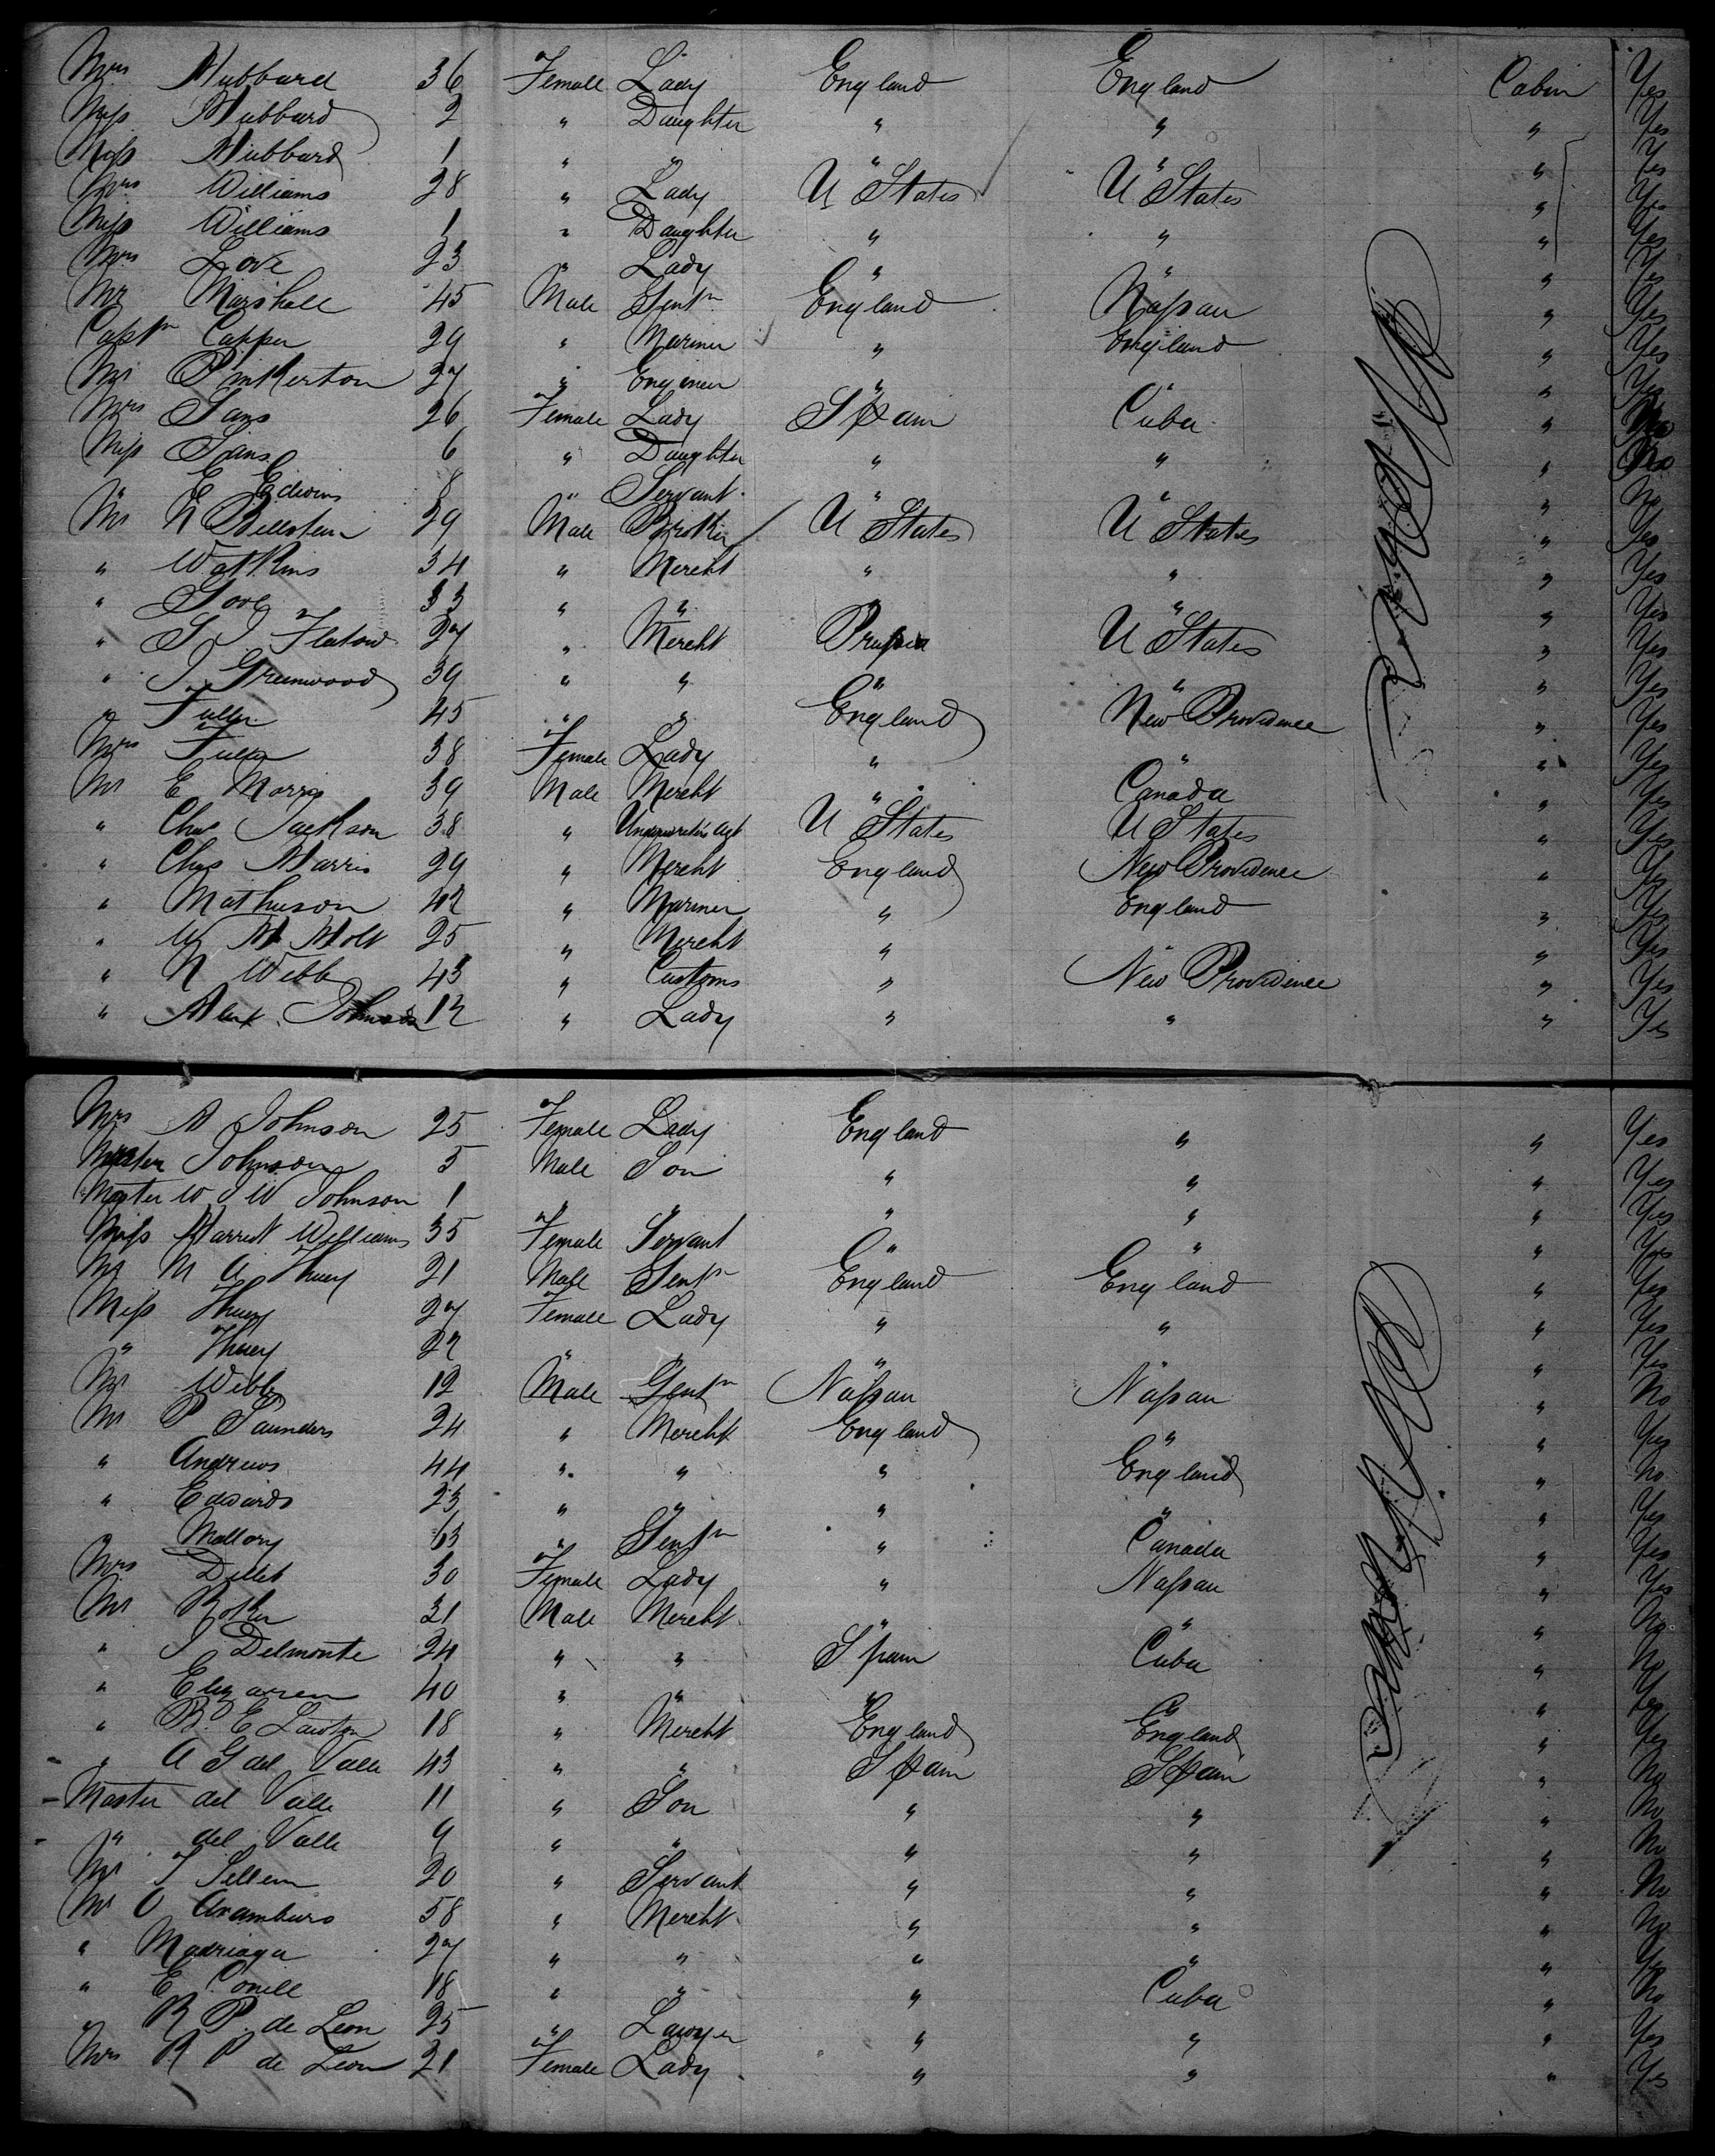 Mrs Hubbard 36 Female Lady England England Cabin Yes
Miss Hubbard 2 " Daughter " " " Yes
Miss Hubbard 1 " " " " " Yes
Mrs Williams 28 " Lady U States U States " Yes
Miss Williams 1 " Daughter " " " Yes
Mrs Love 23 " Lady " " " Yes
Mr Marshall 45 Male Gentn England Nassau " Yes
Captn Capper 29 " Mariner " England " Yes
Mr Pinkerton 27 " Engineer " " " Yes
Mrs Sans 26 Female Lady Spain Cuba "
Miss Sans 6 " Daughter " " "
" E Edwins 8 " Servant " " " No
Mr 29 Male Broker U States U States " Yes
" Watkins 34 " Mercht " " " Yes
" 33 " " " " " Yes
" S J Flatow 27 " Mercht Prussia U States " Yes
" J Greenwood 39 " " " " " Yes
" Fuller 45 " " England New Providence " Yes
Mrs Fuller 38 Female Lady " " " Yes
Mr E Morris 39 Male Mercht " Canada " Yes
" Chas Jackson 38 " Agt U States U States " Yes
" Chas Harris 29 " Mercht England New Providence " Yes
" Mathewson 42 " Mariner " England " Yes
" W H Holt 25 " Mercht " " Yes
" N Webb 43 " Customs " New Providence " Yes
" Alex Johnson 12 " Lady " " " Yes
Mrs A Johnson 25 Female Lady England " " Yes
Master Johnson 5 Male Son " " " Yes
Master W J W Johnson 1 " " " " " Yes
Miss Harriet Williams 35 Female Servant " " " Yes
Mr M A 21 Male Gentn England England " Yes
Miss 27 Female Lady " " " Yes
" 22 " " " " " Yes
Mr Webb 12 Male Gentn Nassau Nassau " No
Mr P Saunders 24 " Mercht England " " Yes
" Andrews 44 " " " England " No
" Edwards 23 " " " " " Yes
" Mallory 63 " Gentn " Canada " Yes
Mrs Dillet 30 Female Lady " Nassau " Yes
Mr 31 Male Mercht " " " No
" J Delmonte 24 " " Spain Cuba " No
" 40 " " " " " Yes
" B. E Lawton 18 " Mercht England England " Yes
" A G del Valle 43 " " Spain Spain " No
Master del Valle 11 " Son " " " No
" del Valle 9 " " " " " No
Mr J 20 " Servant " " " No
Mr O Aramburo 58 " Mercht " " " No
" Madriaga 27 " " " " " Yes
" E Conill 18 " " " Cuba " No
" R P. de Leon 25 " Lawyer " " " Yes
Mrs R P de Leon 21 Female Lady " " " Yes